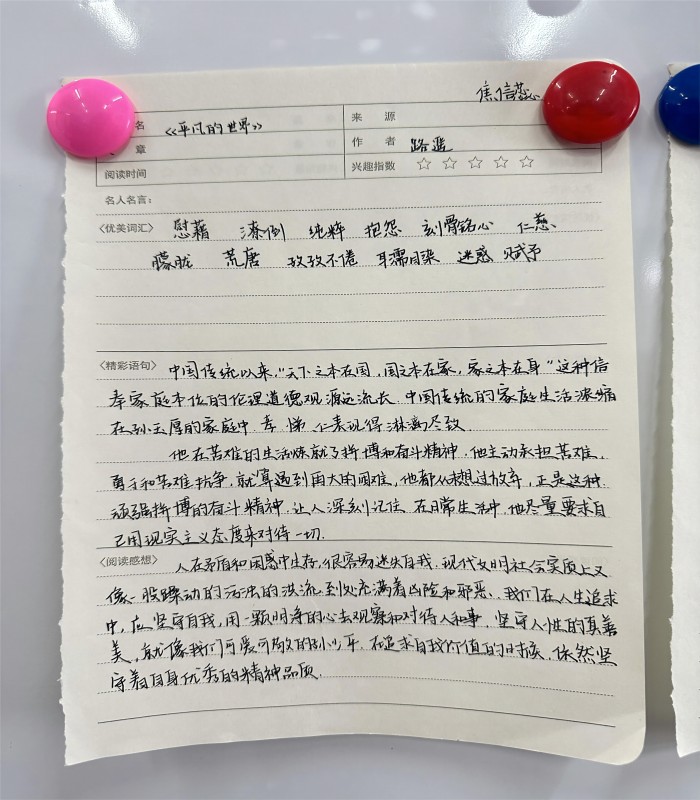 焦信蕊
名 《平凡的世界》 来 源
章 作 者 路遥
阅读时间 兴趣指数 ☆ ☆ ☆ ☆ ☆
名人名言:
〈优美词汇〉 慰藉 潦倒 纯粹 抱怨 刻骨铭心 仁慈
朦胧 荒唐 孜孜不倦 耳濡目染 迷惑 赋予
〈精彩语句〉 中国传统以来,“天下之本在国,国之本在家,家之本在身”这种信
奉家庭本位的伦理道德观源远流长.中国传统的家庭生活浓缩
在孙玉厚的家庭中.孝.悌.仁表现得淋漓尽致.
他在苦难的生活炼就了拼博和奋斗精神.他主动承担苦难,
勇于和苦难抗争,就算遇到再大的困难,他都从未想过放弃,正是这种
顽强拼博的奋斗精神.让人深刻记住.在日常生活中,他尽量要求自
己用现实主义态度来对待一切.
〈阅读感想〉 人在矛盾和困惑中生存,很容易迷失自我.现代文明社会实质上又
像一股躁动的污浊的洪流.到处充满着凶险和邪恶.我们在人生追求
中,应坚守自我,用一颗明净的心去观察和对待人和事.坚守人性的真善
美,就像我们可爱可敬的孙少平.在追求自我价值的时候,依然坚
守着自身优秀的精神品质.